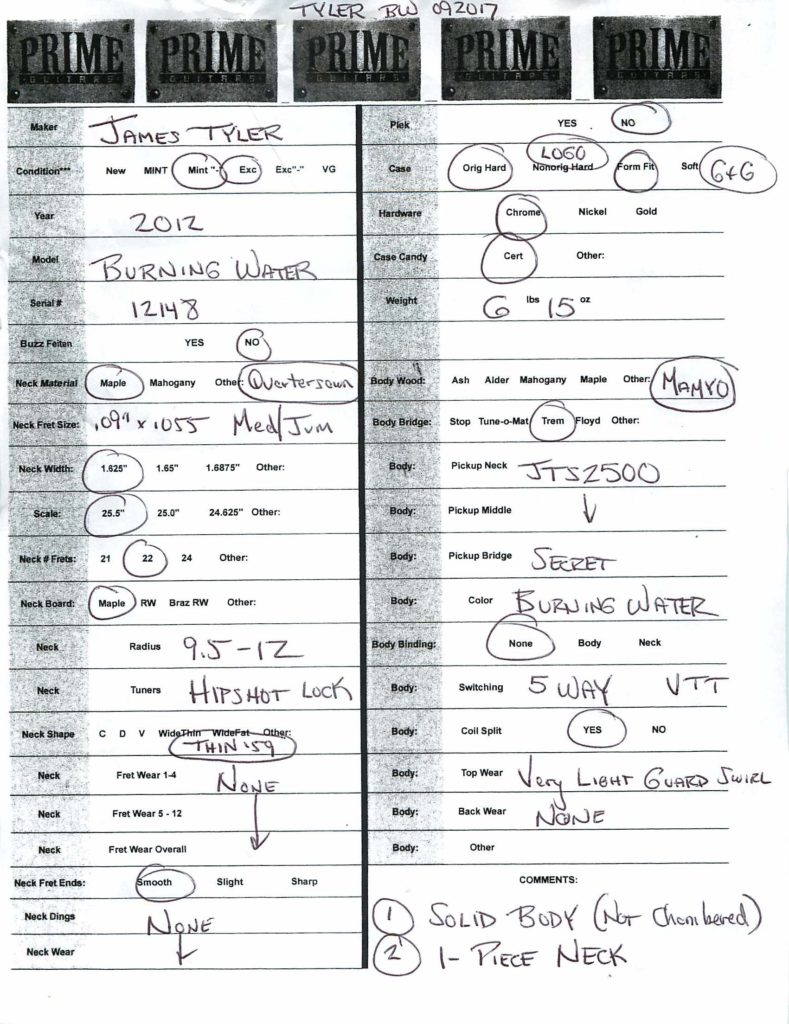 TYLER BW 092017
PRIME PRIME PRIME PRIME PRIME
GUITARS GUITARS GUITARS GUITARS GUITARS
Maker JAMES TYLER
Condition*** New MINT Mint "-" Exc Exc"-" VG
Year 2012
Model BURNING WATER
Serial # 12148
Buzz Feiten YES NO
Neck Material Maple Mahogany Other: Quartersawn
Neck Fret Size: .097" x .055 Med/Jum
Neck Width: 1.625" 1.65" 1.6875" Other:
Scale: 25.5" 25.0" 24.625" Other:
Neck # Frets: 21 22 24 Other:
Neck Board: Maple RW Braz RW Other:
Neck Radius 9.5-12
Neck Tuners HIPSHOT LOCK
Neck Shape C D V WideThin WideFat Other:
THIN '59
Neck Fret Wear 1-4 NONE
Neck Fret Wear 5 - 12
Neck Fret Wear Overall
Neck Fret Ends: Smooth Slight Sharp
Neck Dings NONE
Neck Wear
Plek YES NO
LOGO
Case Orig Hard Nonorig Hard Form Fit Soft G&G
Hardware Chrome Nickel Gold
Case Candy Cert Other:
Weight 6 lbs 15 oz
Body Wood: Ash Alder Mahogany Maple Other: MAMYO
Body Bridge: Stop Tune-o-Mat Trem Floyd Other:
Body: Pickup Neck JTS2500
Body: Pickup Middle
Body: Pickup Bridge SECRET
Body: Color BURNING WATER
Body Binding: None Body Neck
Body: Switching 5 WAY VTT
Body: Coil Split YES NO
Body: Top Wear Very LIGHT GUARD SWIRL
Body: Back Wear NONE
Body: Other
COMMENTS:
1 SOLID BODY (Not Chambered)
2 1-PIECE NECK